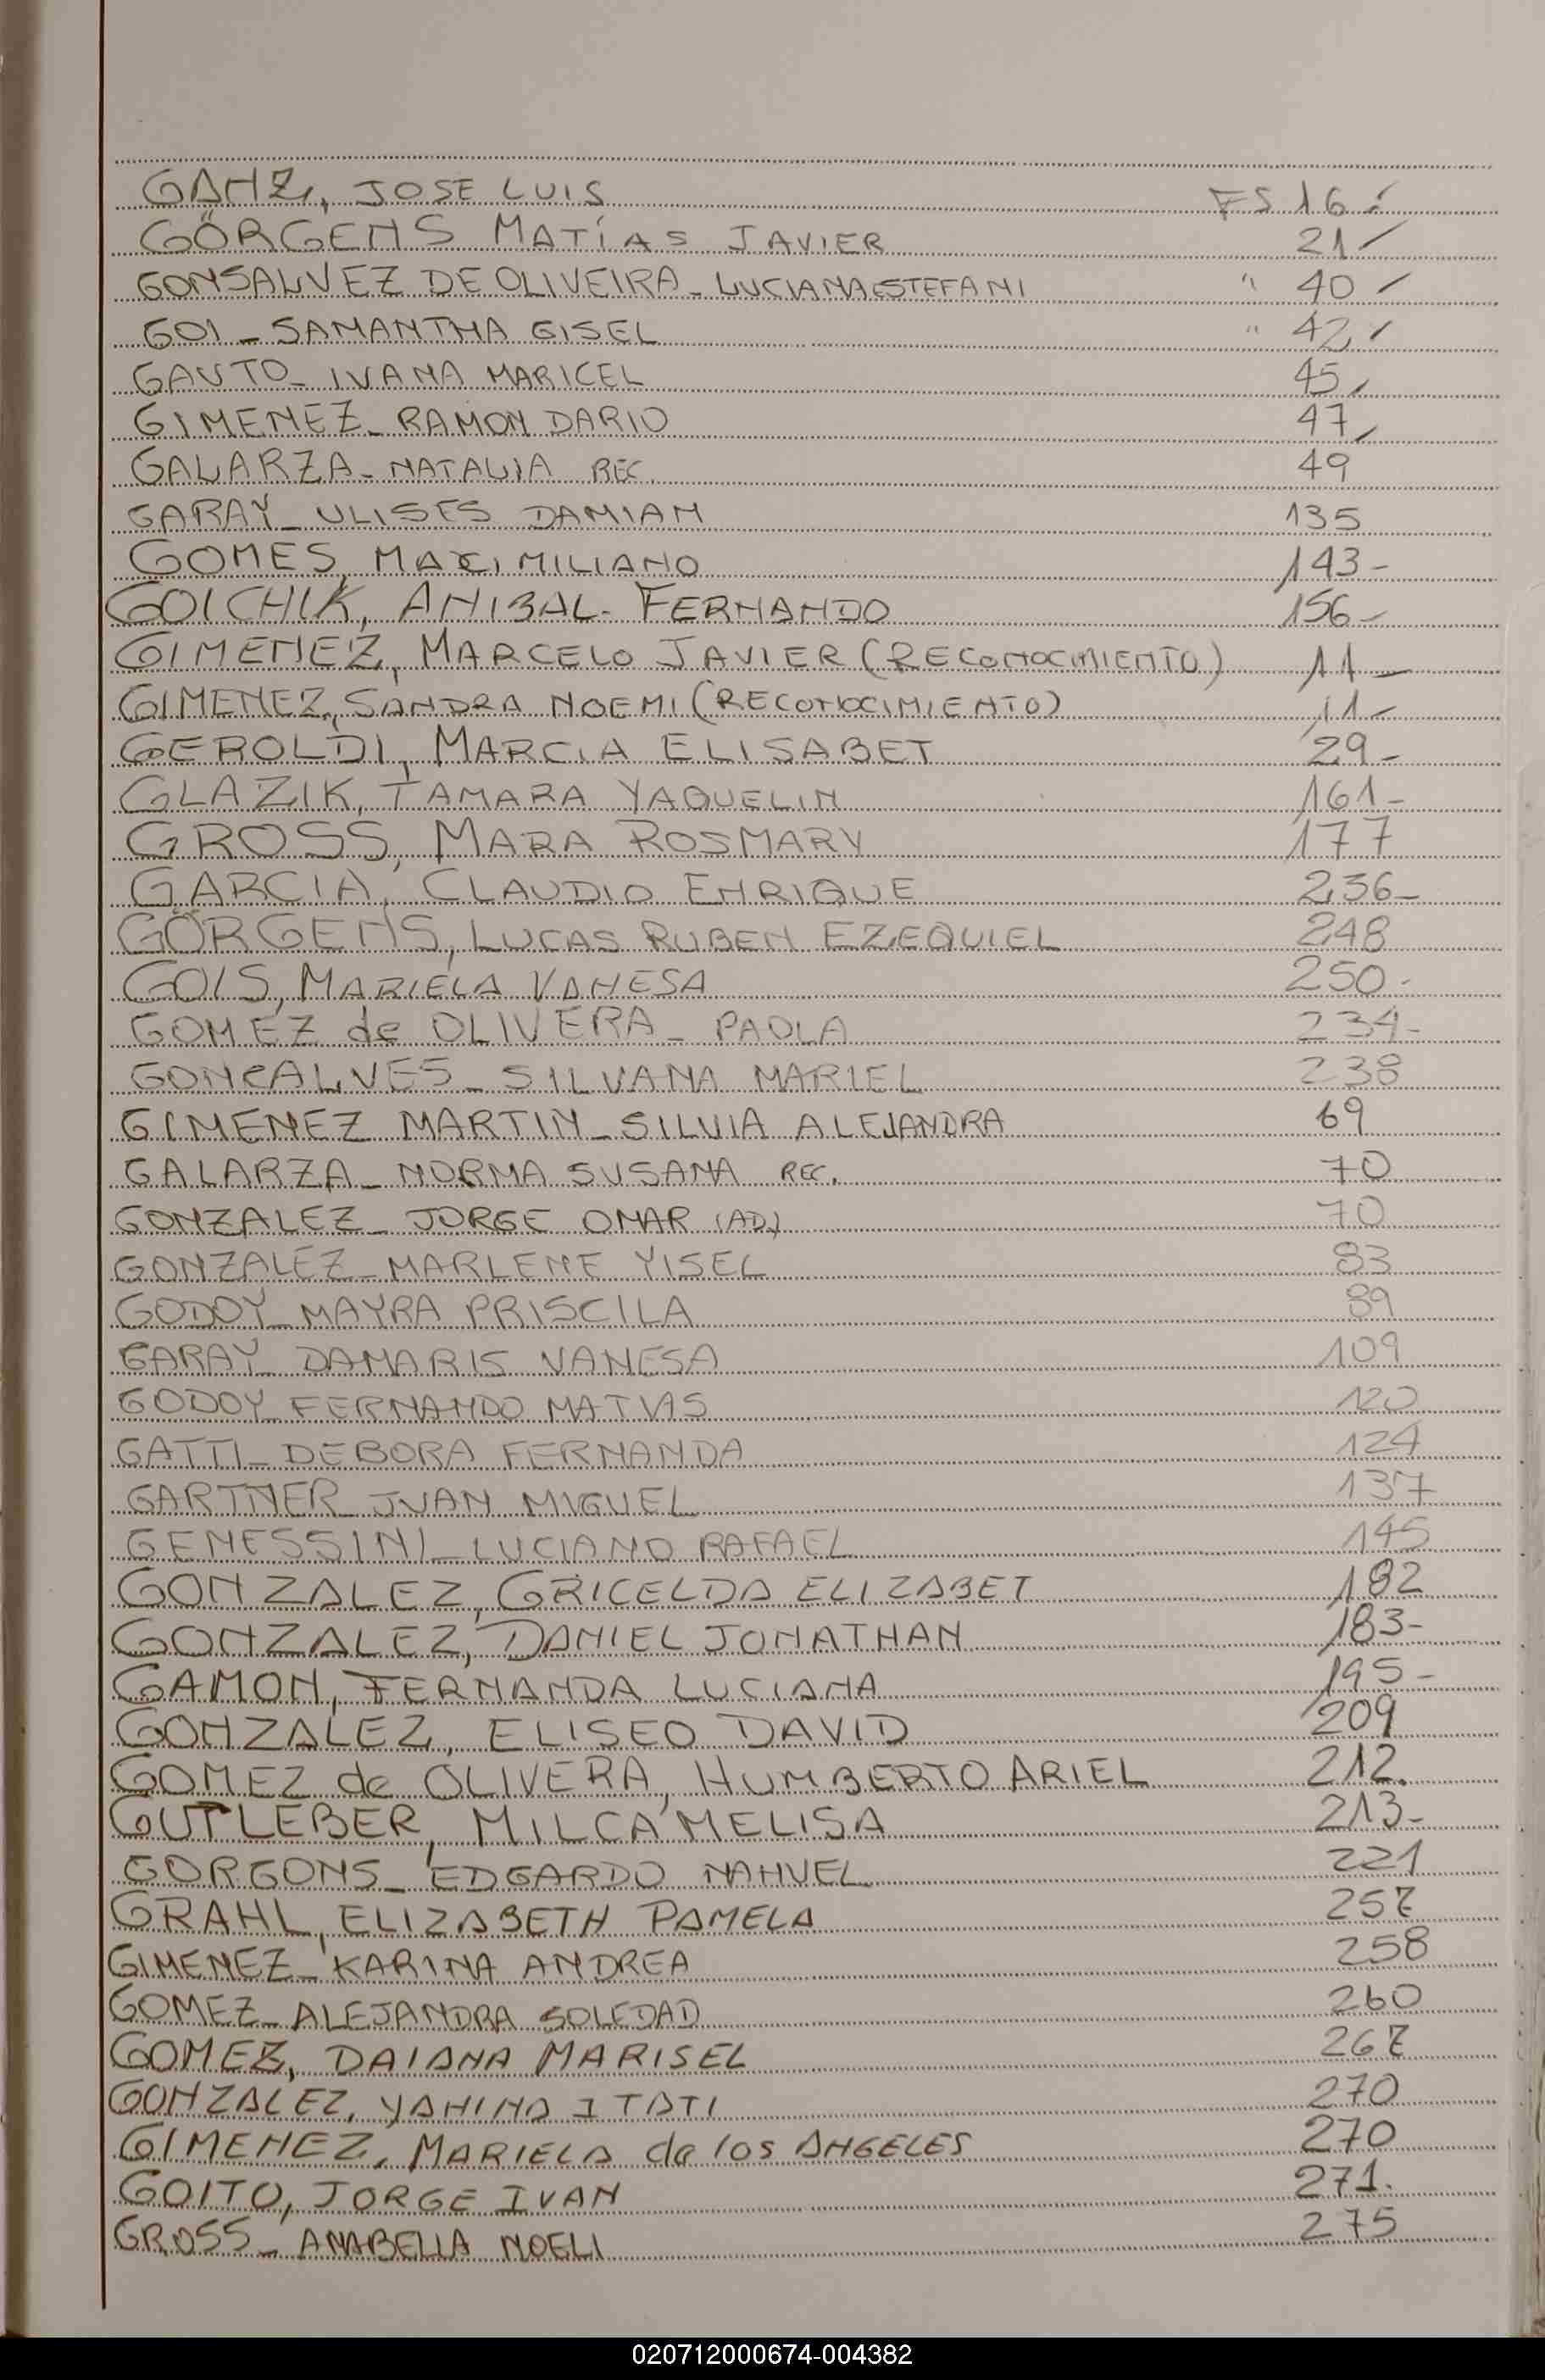 GANZ, JOSE LUIS FS 16 -
GÖRGENS MATÍAS JAVIER 21 -
GONSALVEZ DE OLIVEIRA - LUCIANA ESTEFANI " 40 -
GOI - SAMANTHA GISEL " 42 -
GAUTO - IVANA MARICEL 45 -
GIMENEZ - RAMON DARIO 47 -
GALARZA - NATALIA REC. 49
GARAY - ULISES DAMIAN 135
GOMES, MAXIMILIANO 143 -
GOICHIK, ANIBAL - FERNANDO 156 -
GIMENEZ, MARCELO JAVIER (RECONOCIMIENTO) 11 -
GIMENEZ, SANDRA NOEMI (RECONOCIMIENTO) 11 -
GEROLDI, MARCIA ELISABET 29 -
GLAZIK, TAMARA YAQUELIN 161 -
GROSS, MARA ROSMARY 177
GARCIA, CLAUDIO ENRIQUE 236 -
GÖRGENS, LUCAS RUBEN EZEQUIEL 248
GOIS, MARIELA VANESA 250 -
GOMEZ de OLIVERA - PAOLA 234 -
GONCALVES - SILVANA MARIEL 238
GIMENEZ MARTIN - SILVIA ALEJANDRA 69
GALARZA - NORMA SUSANA REC. 70
GONZALEZ - JORGE OMAR (AD) 70
GONZALEZ - MARLENE YISEL 83
GODOY - MAYRA PRISCILA 89
GARAY - DAMARIS VANESA 109
GODOY - FERNANDO MATIAS 120
GATTI - DEBORA FERNANDA 124
GARTNER - JUAN MIGUEL 137
GENESSINI - LUCIANO RAFAEL 145
GONZALEZ, GRICELDA ELIZABET 182
GONZALEZ, DANIEL JONATHAN 183 -
GAMON, FERNANDA LUCIANA 195 -
GONZALEZ, ELISEO DAVID 209
GOMEZ de OLIVERA, HUMBERTO ARIEL 212.
GUTLEBER, MILCA MELISA 213 -
GORGONS - EDGARDO NAHUEL 221
GRAHL, ELIZABETH PAMELA 257
GIMENEZ - KARINA ANDREA 258
GOMEZ - ALEJANDRA SOLEDAD 260
GOMEZ, DAIANA MARISEL 267
GONZALEZ, YANINA ITATI 270
GIMENEZ, MARIELA de los ANGELES 270
GOITO, JORGE IVAN 271.
GROSS - ANABELLA NOELI 275
020712000674-004382